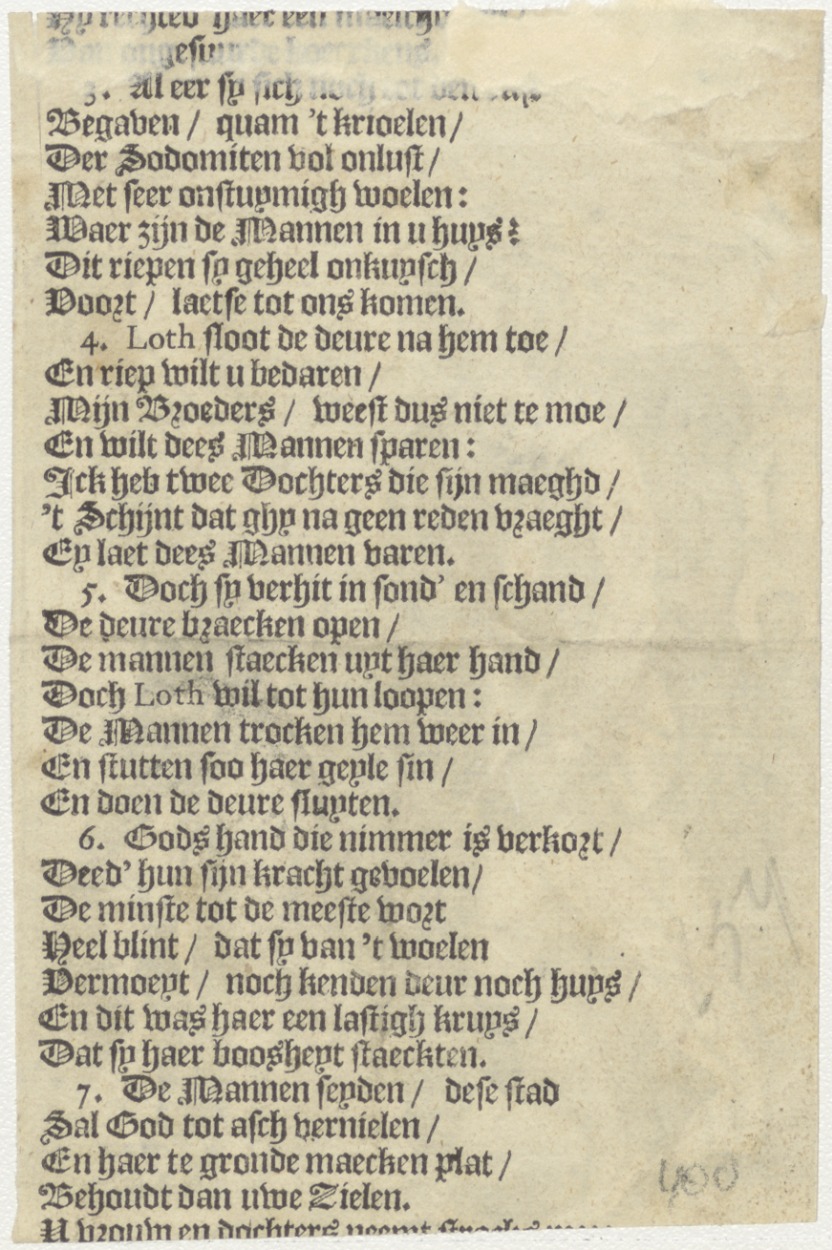 Hy rechted' haer een
ongesuu
3. Al eer sy sich noch tot den rust
Begaven / quam 't krioelen /
Der Sodomiten vol onlust /
Met seer onstuymigh woelen :
Waer zijn de Mannen in u huys?
Dit riepen sy geheel onkuysch /
Voort / laetse tot ons komen.
4. Loth sloot de deure na hem toe /
En riep wilt u bedaren /
Mijn Broeders / weest dus niet te moe /
En wilt dees Mannen sparen :
Ick heb twee Dochters die sijn maeghd /
't Schijnt dat ghy na geen reden vraeght /
Ey laet dees Mannen varen.
5. Doch sy verhit in sond' en schand /
De deure braecken open /
De mannen staecken uyt haer hand /
Doch Loth wil tot hun loopen :
De Mannen trocken hem weer in /
En stutten soo haer geyle sin /
En doen de deure sluyten.
6. Gods hand die nimmer is verkort /
Deed' hun sijn kracht gevoelen /
De minste tot de meeste wort
Heel blint / dat sy van 't woelen
Vermoeyt / noch kenden deur noch huys /
En dit was haer een lastigh kruys /
Dat sy haer boosheyt staeckten.
7. De Mannen seyden / dese stad
Sal God tot asch vernielen /
En haer te gronde maecken plat /
Behoudt dan uwe Zielen.
U vrouw en dochters neemt stracks
400